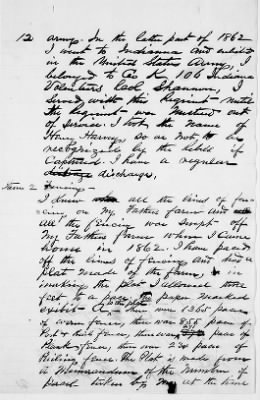 12 army. In the latter part of 1862
I went to Indianna and enlisted
in the United States Army, I
belonged to Co K, 106 Indiana
Volunteers Col Shannon, I
Served with this Regiment - until
the Regiment was Mustered out
of Service. I took the name of
Henry Harvey, so as not to be
recognized by the rebels if
Captured. I have a regular
discharge,
Item 2 Fencing -
I knew all the lines of fen-
cing on My Fathers farm and
all the fencing was swept off
My Fathers farm when I came
home in 1862. I have paced
off the lines of fencing and had a
plat made of the farm, in
making the plat I allowed three
feet to a pace, paper marked
exhibit A, there were 1365 paces
of worm fence, there was 855 paces of
Post & fence, there was paces of
Plank fence, there were 220 paces of
Picking fence. The Plat is made from
a Memorandum of the Number of
paces taken by me at the time